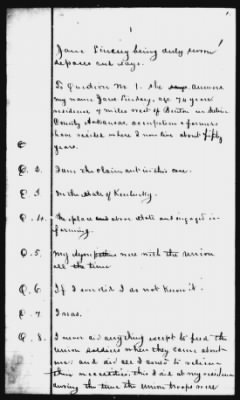 1
Jane Lindsey being duly sworn
deposes and says.
To Question No 1. She answers
my name Jane Lindsey, age 74 years
residence 7 miles west of Benton in Saline
County Arkansas occupation a farmer
have resided where I now live about fifty
years.
Q. 2. I am the claimant in this case.
Q. 3. In the State of Kentucky.
Q. 4. The place and above state and engaged in
farming.
Q. 5. My sympathies were with the union
all the time
Q. 6. If I ever did I do not know it.
Q. 7. I was.
Q. 8. I never did anything except to feed the
union soldiers when they came about
me and did all I could to relieve
their necessities this I did at my residence
during the time the union troops were